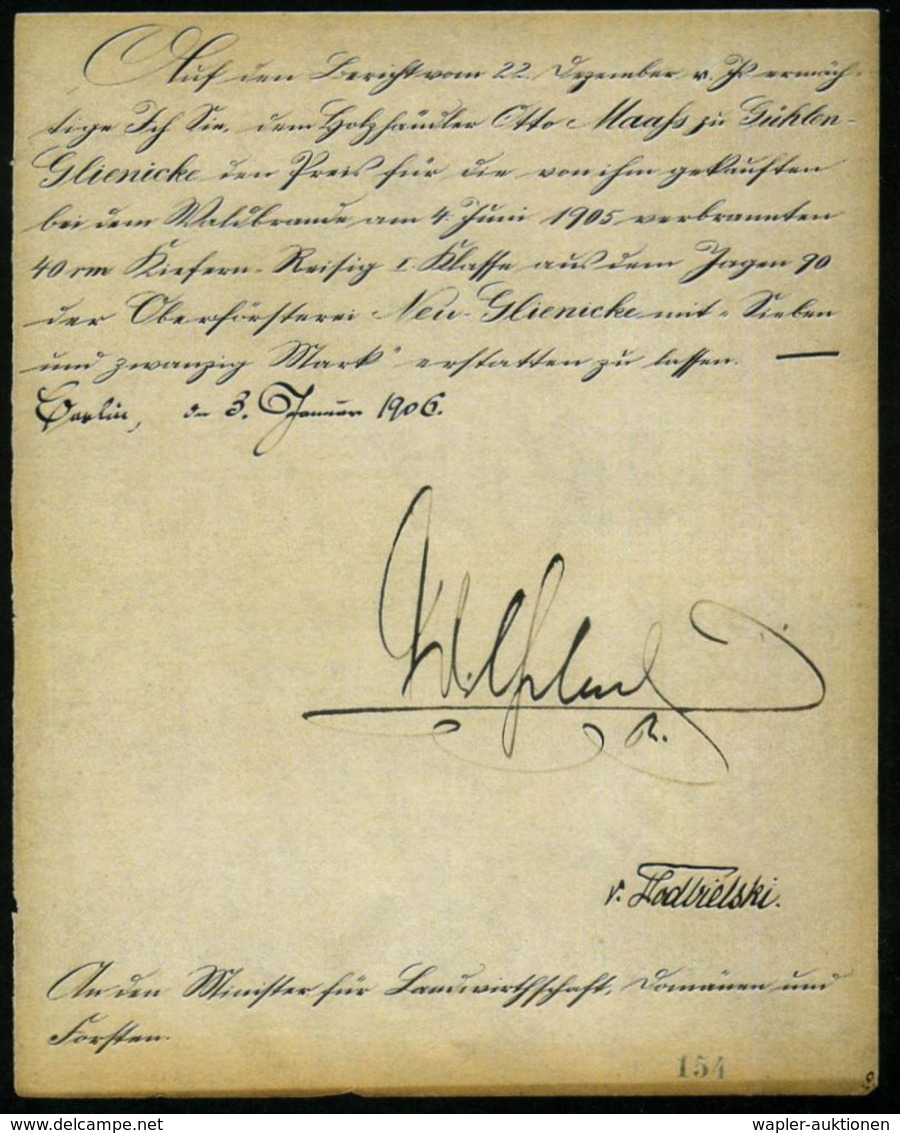 Auf den Bericht vom 22. Dezember v. Js. ermäch-
tige Ich Sie, dem Holzhändler Otto Maaß zu Gühlen-
Glienicke den Preis für die von ihm gekauften
bei dem Waldbrande am 4. Juni 1905 verbrannten
40 rm Kiefern-Reisig I. Klasse aus dem Jagen 90
der Oberförsterei Neu-Glienicke mit „Sieben
und zwanzig Mark" erstatten zu lassen. —
Berlin, den 3. Januar 1906.
Wilhelm
R.
v. Podbielski.
An den Minister für Landwirthschaft, Domänen und
Forsten.
154
wapler-auktionen